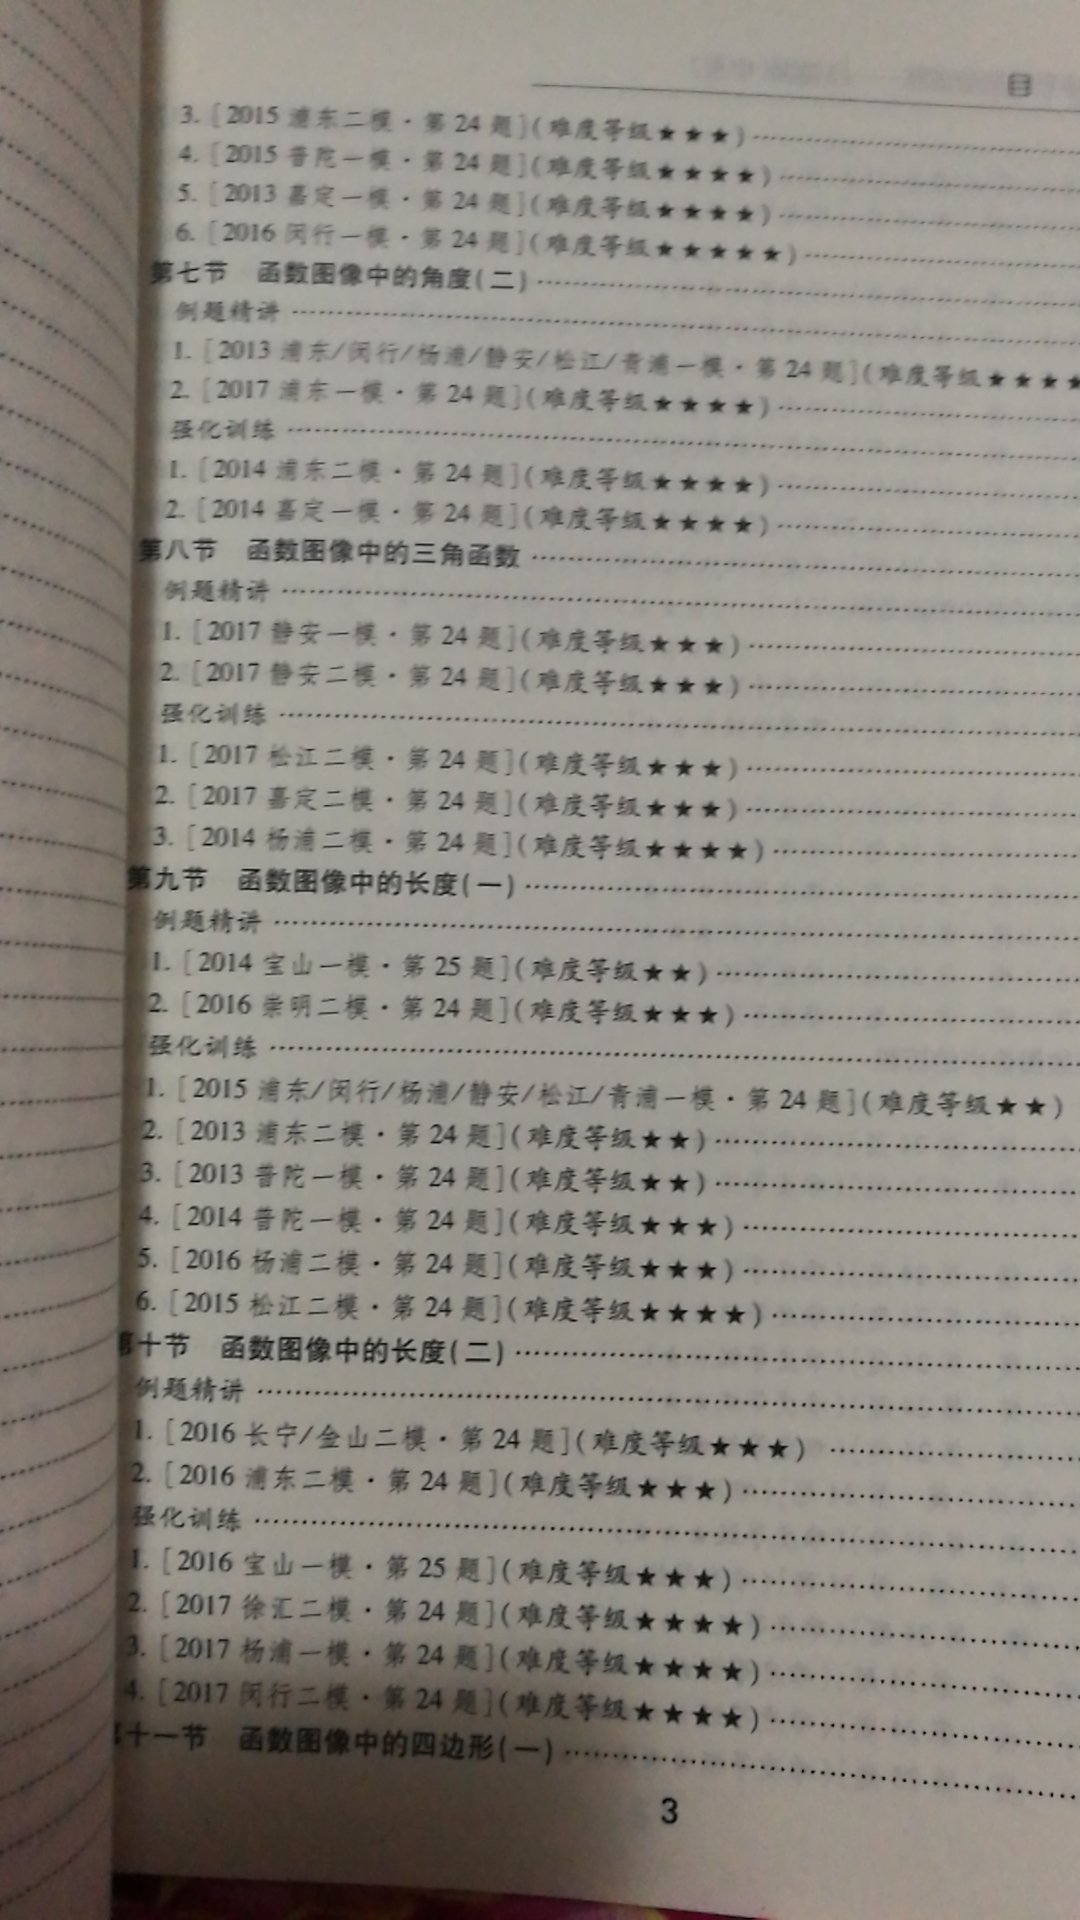 目
3. [2015 浦东二模·第 24 题](难度等级★★★)
4. [2015 普陀一模·第 24 题](难度等级★★★★)
5. [2013 嘉定一模·第 24 题](难度等级★★★★)
6. [2016 闵行一模·第 24 题](难度等级★★★★★)
第七节 函数图像中的角度(二)
例题精讲
1. [2013 浦东/闵行/杨浦/静安/松江/青浦一模·第 24 题](难度等级★★★★
2. [2017 浦东一模·第 24 题](难度等级★★★★)
强化训练
1. [2014 浦东二模·第 24 题](难度等级★★★★)
2. [2014 嘉定一模·第 24 题](难度等级★★★★)
第八节 函数图像中的三角函数
例题精讲
1. [2017 静安一模·第 24 题](难度等级★★★)
2. [2017 静安二模·第 24 题](难度等级★★★)
强化训练
1. [2017 松江二模·第 24 题](难度等级★★★)
2. [2017 嘉定二模·第 24 题](难度等级★★★)
3. [2014 杨浦二模·第 24 题](难度等级★★★★)
第九节 函数图像中的长度(一)
例题精讲
1. [2014 宝山一模·第 25 题](难度等级★★)
2. [2016 崇明二模·第 24 题](难度等级★★★)
强化训练
1. [2015 浦东/闵行/杨浦/静安/松江/青浦一模·第 24 题](难度等级★★)
2. [2013 浦东二模·第 24 题](难度等级★★)
3. [2013 普陀一模·第 24 题](难度等级★★)
4. [2014 普陀一模·第 24 题](难度等级★★★)
5. [2016 杨浦二模·第 24 题](难度等级★★★)
6. [2015 松江二模·第 24 题](难度等级★★★★)
第十节 函数图像中的长度(二)
例题精讲
1. [2016 长宁/金山二模·第 24 题](难度等级★★★)
2. [2016 浦东二模·第 24 题](难度等级★★★)
强化训练
1. [2016 宝山一模·第 25 题](难度等级★★★)
2. [2017 徐汇二模·第 24 题](难度等级★★★★)
3. [2017 杨浦一模·第 24 题](难度等级★★★★)
4. [2017 闵行二模·第 24 题](难度等级★★★★)
第十一节 函数图像中的四边形(一)
3